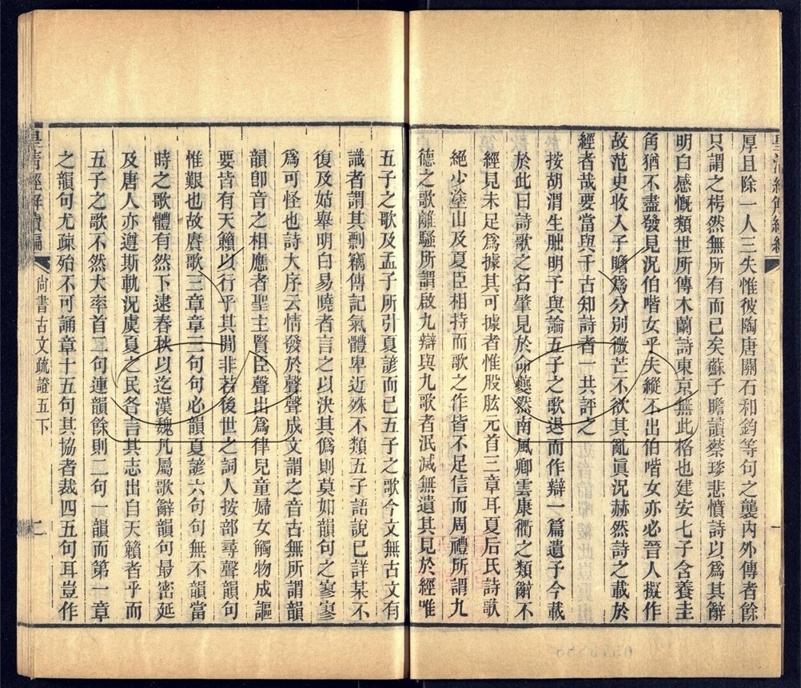 厚且除一人三失惟彼陶唐關石和鈞等句之襲內外傳者餘
只謂之枵然無所有而已矣蘇子瞻讀蔡琰悲憤詩以爲其辭
明白感慨類世所傳木蘭詩東京無此格也建安七子含養圭
角猶不盡發見況伯喈女乎失縱不出伯喈女亦必晉人擬作
故范史收入子瞻爲分別微芒不欲其亂眞況赫然詩之載於
經者哉要當與千古知詩者一共評之
按胡渭生朏明予與論五子之歌退而作辯一篇遺予今載
於此曰詩歌之名肇見於命夔然南風卿雲康衢之類辭不
經見未足爲據其可據者惟股肱元首三章耳夏后氏詩歌
絕少塗山及夏臣相持而歌之作皆不足信而周禮所謂九
德之歌離騷所謂啟九辯與九歌者泯滅無遺其見於經唯
五子之歌及孟子所引夏諺而已五子之歌今文無古文有
識者謂其剽竊傳記氣體卑近殊不類五子語說已詳某不
復及姑舉明白易曉者言之以決其僞則莫如韻句之寥寥
爲可怪也詩大序云情發於聲聲成文謂之音古無所謂韻
韻卽音之相應者聖主賢臣聲出爲律兒童婦女觸物成謳
要皆有天籟以行乎其閒非若後世之詞人按部尋聲韻句
惟艱也故賡歌三章章三句句必韻夏諺六句句無不韻當
時之歌體有然下逮春秋以迄漢魏凡屬歌辭韻句最密延
及唐人亦遵斯軌況虞夏之民各言其志出自天籟者乎而
五子之歌不然大率首二句連韻餘則二句一韻而第一章
之韻句尤疎殆不可誦章十五句其協者裁四五句耳豈作
皇清經解續編
尚書古文疏證五下